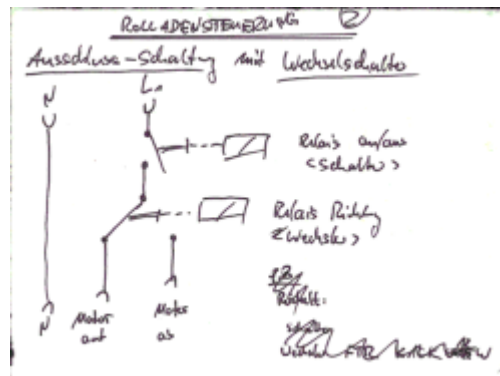 ROLLADENSTEUERUNG 2
Ausschluss-Schaltung mit Wechselschalter
N L1
Relais an/aus
<Schalter>
Relais Richtung
<Wechsler>
N Motor auf Motor ab